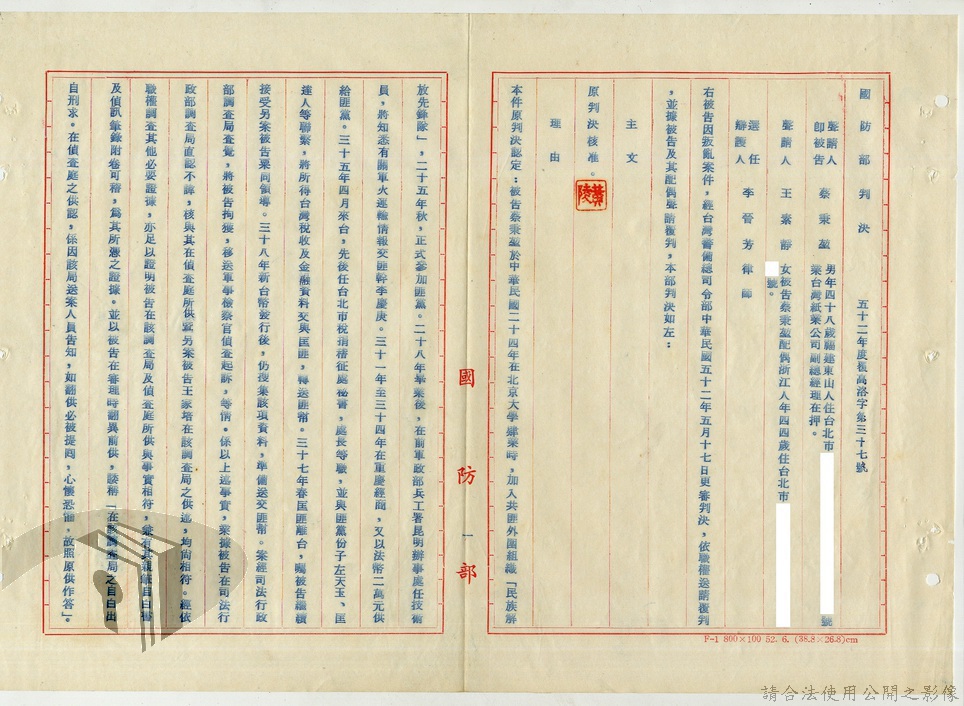 國防部判決 五十二年度覆高洛字第三十七號
聲請人
即被告 蔡秉堃 男年四十八歲福建東山人住台北市 號
業台灣紙業公司副總經理在押。
聲請人 王素靜 女被告蔡秉堃配偶浙江人年四四歲住台北市
號。
選任
辯護人 李晉芳律師
右被告因叛亂案件，經台灣警備總司令部中華民國五十二年五月十七日更審判決，依職權送請覆判
，並據被告及其配偶聲請覆判，本部判決如左：
主文
原判決核准。
黃陵
理由
本件原判決認定：被告蔡秉堃於中華民國二十四年在北京大學肄業時，加入共匪外圍組織「民族解
放先鋒隊」，二十五年秋，正式參加匪黨。二十八年畢業後，在前軍政部兵工署昆明辦事處任技術
員，將知悉有關軍火運輸情報交匪幹李慶庚。三十一年至三十四年在重慶經商，又以法幣二萬元供
給匪黨。三十五年四月來台，先後任台北市稅捐稽征處秘書，處長等職，並與匪黨份子左天玉、匡
達人等聯繫，將所得台灣稅收及金融資料交與匡匪，轉送匪幫。三十七年春匡匪離台，囑被告繼續
接受另案被告栗同領導。三十八年新台幣發行後，仍搜集該項資料，準備送交匪幫。案經司法行政
部調查局查覺，將被告拘獲，移送軍事檢察官偵查起訴，等情。係以上述事實，業據被告在司法行
政部調查局直認不諱，核與其在偵查庭所供暨另案被告王家塔在該調查局之供述，均尚相符。經依
職權調查其他必要證據，亦足以證明被告在該調查局及偵查庭所供與事實相符，並有其親繕自白書
及偵訊筆錄附卷可稽，為其所憑之證據。並以被告在審理時翻異前供，諉稱「在該調查局之自白出
自刑求。在偵查庭之供認，係因該局送案人員告知，如翻供必被提回，心懷恐怖，故照原供作答」。
國防部
一
F-1 800×100 52. 6. (38.8×26.8)cm
請合法使用公開之影像